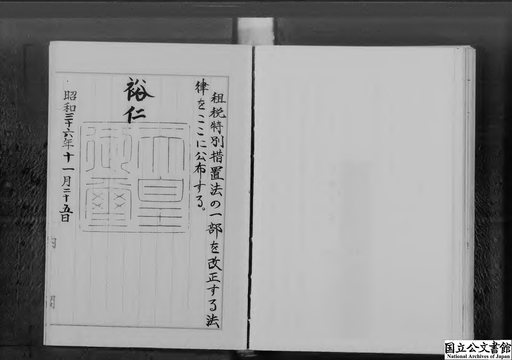 租税特別措置法の一部を改正する法
律をここに公布する。
裕仁
天皇
御璽
昭和三十六年十一月二十五日
国立公文書館
National Archives of Japan